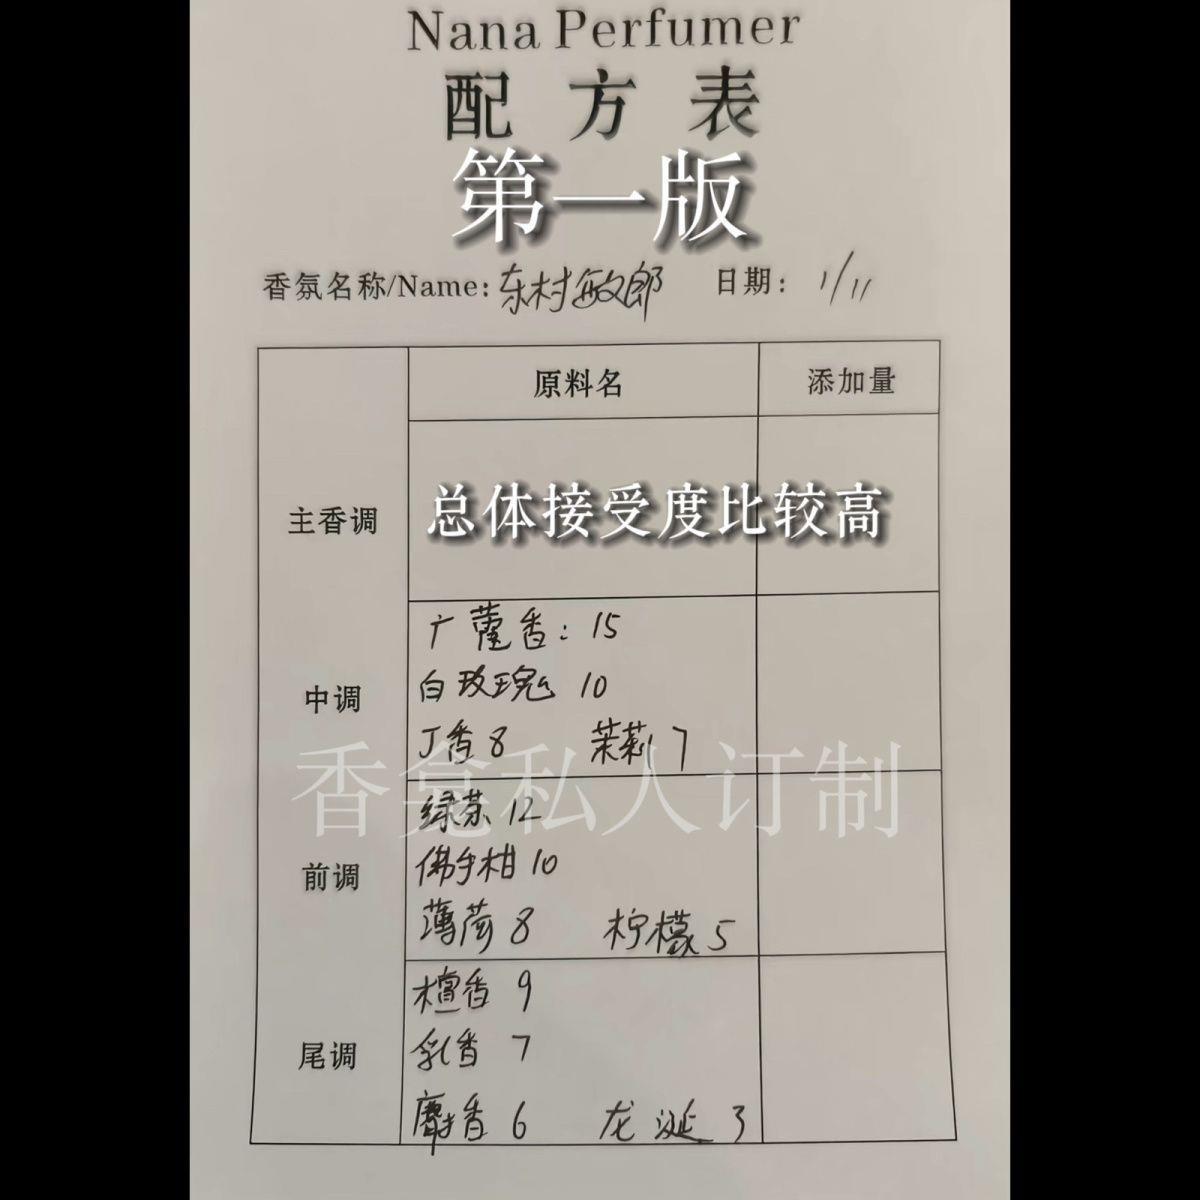 Nana Perfumer
配方表
第一版
香氛名称/Name: 东村敏郎 日期: 1/11
原料名 添加量
主香调 总体接受度比较高
广藿香: 15
中调 白玫瑰 10
丁香 8 茉莉 7
香盒私人订制
绿茶 12
前调 佛手柑 10
薄荷 8 柠檬 5
檀香 9
尾调 乳香 7
麝香 6 龙涎 3